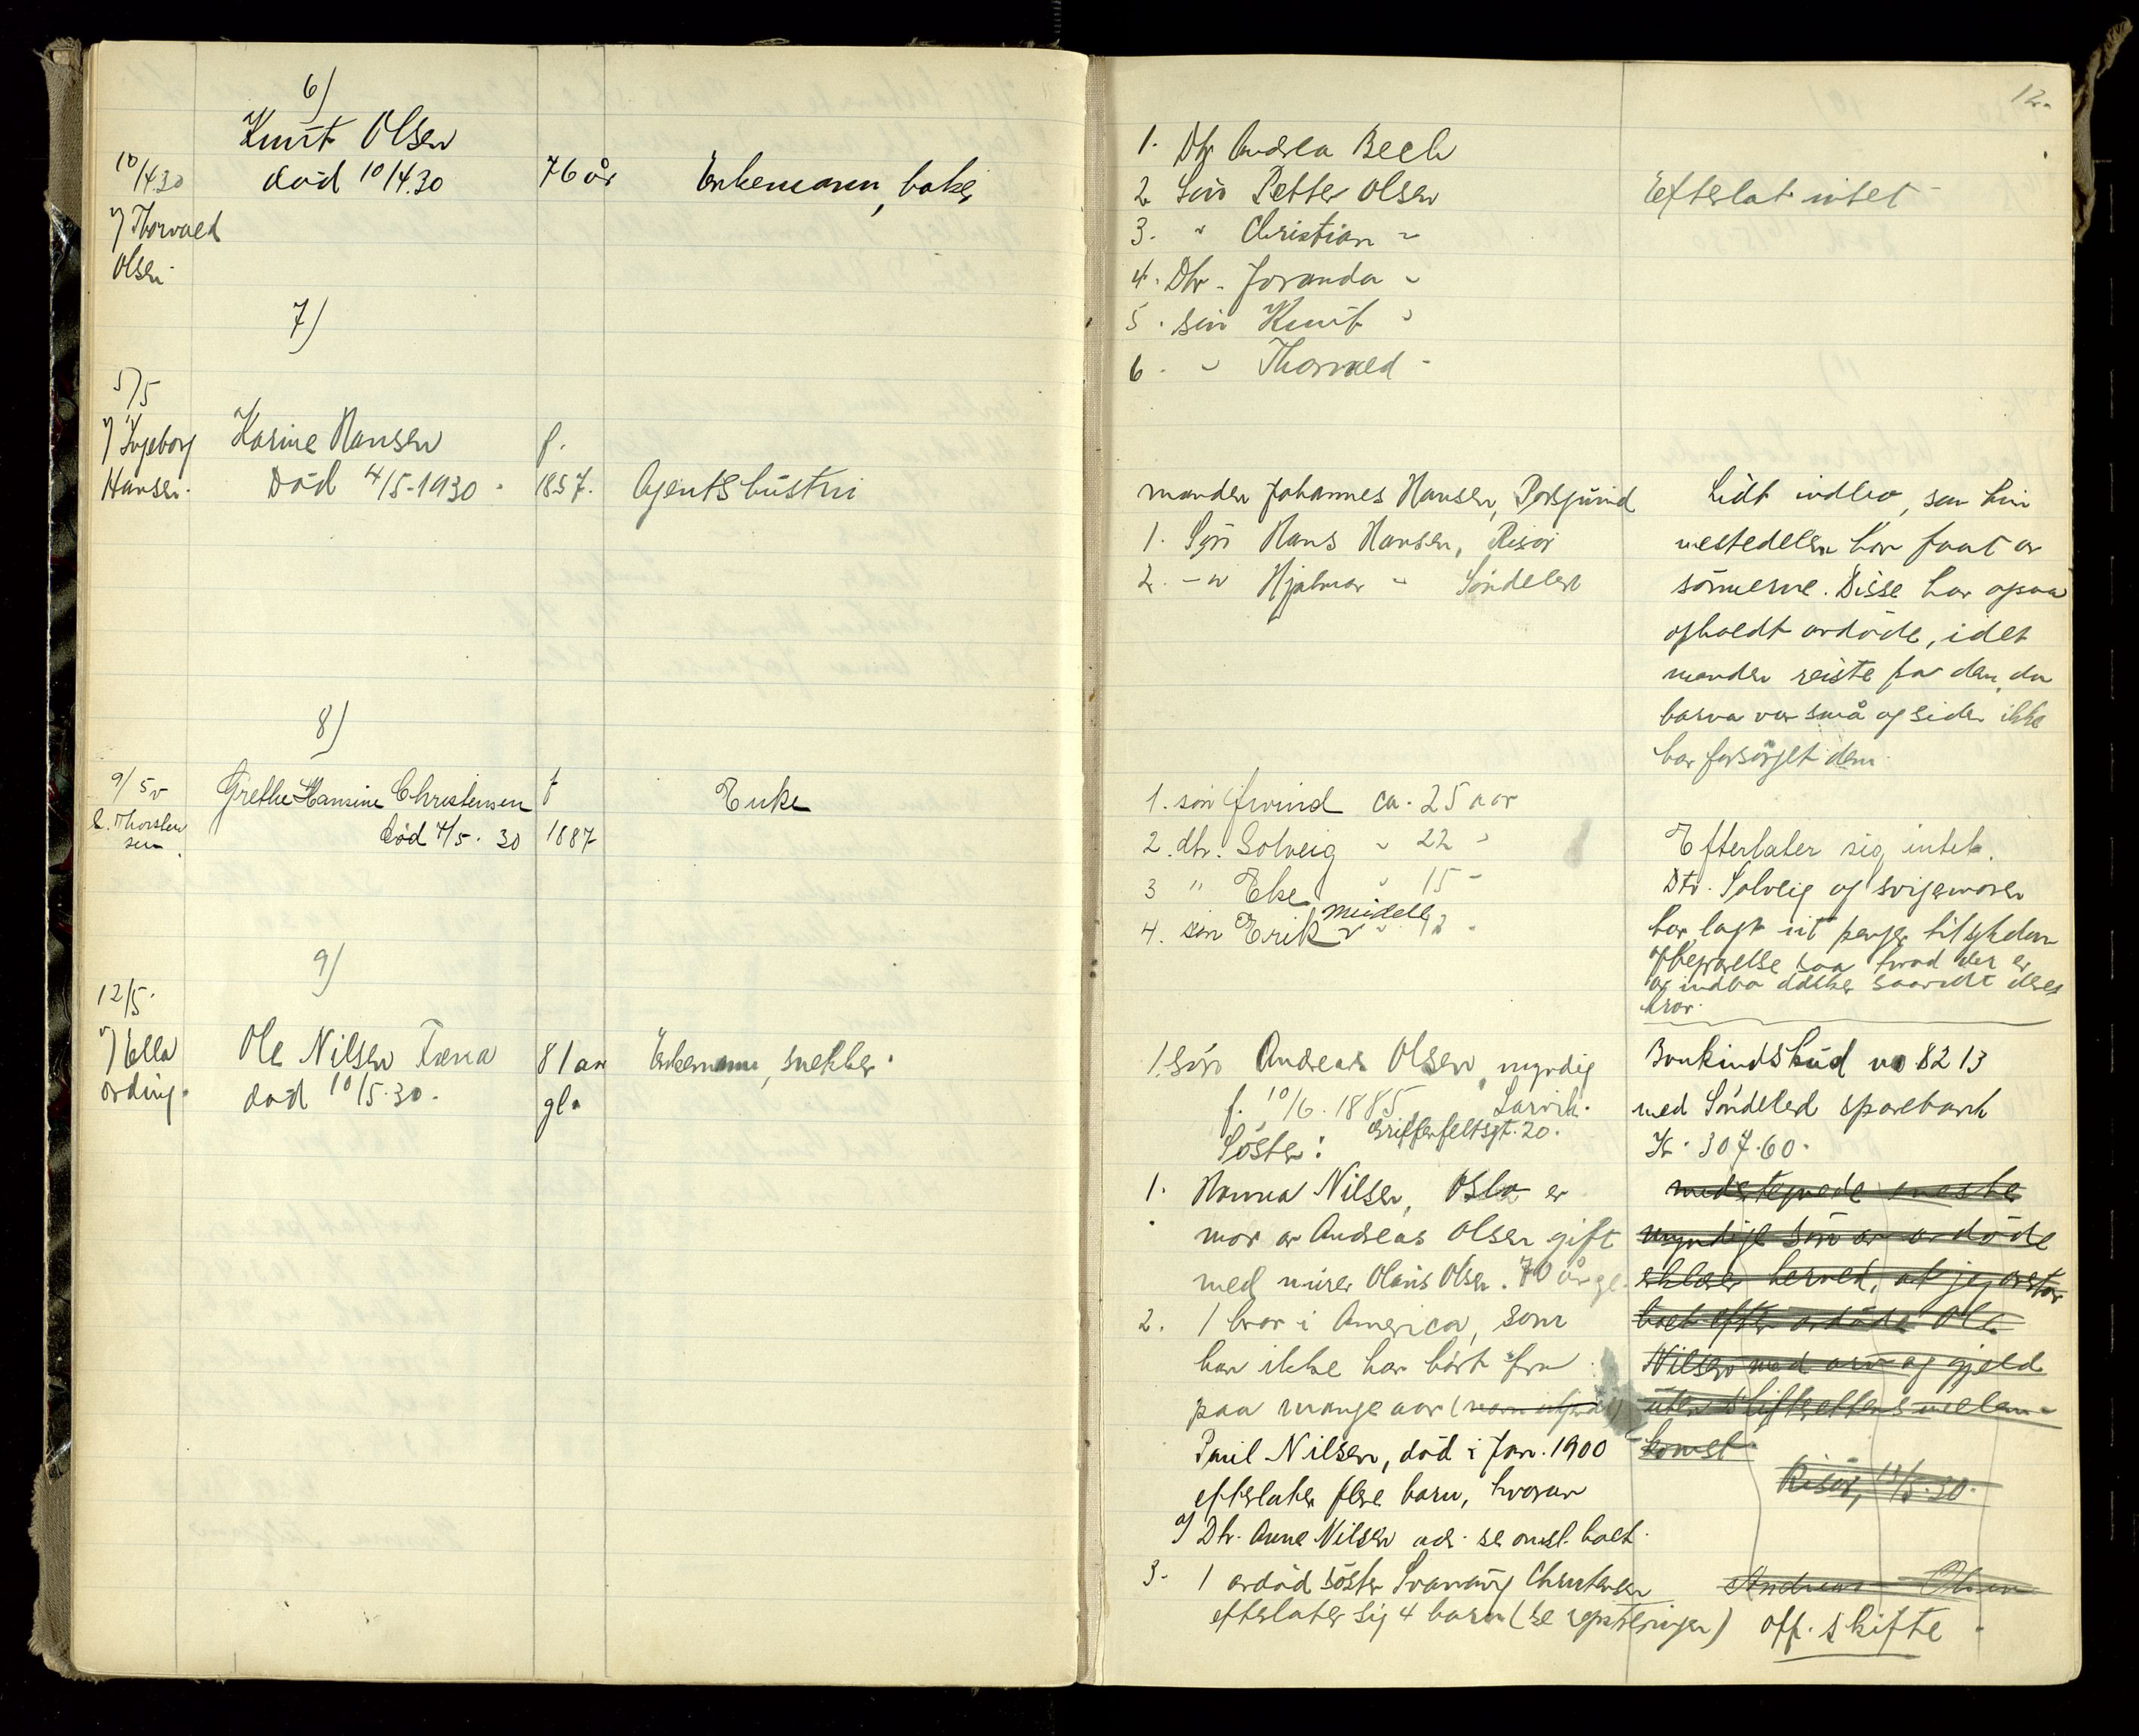 6)
Knut Olsen
10/4.30
død 10/4.30
76 år
Enkemann, baker
v/ Thorvald
Olsen.
7)
5/5
v/ Ingeborg
Hansen.
Karine Hansen
Död 4/5-1930.
f.
1857.
Agents hustru
8)
9/5 v
C. Thorsten
sen.
Grethe Hansine Christensen
død 4/5. 30
f
1887
Enke
9)
12/5.
v/ Ella
Ording.
Ole Nilsen
död 10/5.30.
81 aar
gl.
Enkemann, snekker.
12.
1. Dtr Andrea Bech
2 Sön Petter Olsen
3. " Christian "
4. Dtr. Joranda "
5. sön Knut "
6. " Thorvald "
Efterlat intet
manden Johannes Hansen, Porsgrund
1. Sön Hans Hansen, Risör
2. - " Hjalmar " Söndeled
Lidt indbo, som hun
mestedelen har faat av
sönnerne. Disse har ogsaa
opholdt avdöde, idet
manden reiste fra dem, da
barna var små og siden ikke
har forsörget dem.
1. sön Eivind ca. 25 aar
2. dtr. Solveig " 22 "
3 " Else " 15 "
4. sön Erik " " 12 "
Efterlater sig intet.
Dtr. Solveig og svigermoren
har lagt ut penger til sykdom
og begravelse saa hvad der er
av indbo dækker saavidt deres
krav.
1. Sön Andreas Olsen, myndig
f. 10/6. 1885 Larvik.
Griffenfeltsgt. 20.
Söster:
1. Hanna Nilsen, Oslo er
mor av Andreas Olsen gift
med murer Olaus Olsen. 70 år gl.
2. 1 bror i America, som
han ikke har hört fra
paa mange aar
Paul Nilsen, död i Jan. 1900
efterlater flere barn, hvorav
Dtr. Anne Nilsen adr. se omsl. boet.
3. 1 avdöd söster Christensen
efterlater sig 4 barn (se registreringen)
Bankindskud no 8213
med Söndeled sparebank
Kr. 307.60.
undertegnede eneste
myndige sön av avdöde
erklærer herved, at jeg overtar
boet efter avdöde Ole
Nilsen med arv og gjeld
uten skifterettens mellem-
komst.
Risör, 12/5.30.
Andreas Olsen
off. skifte.